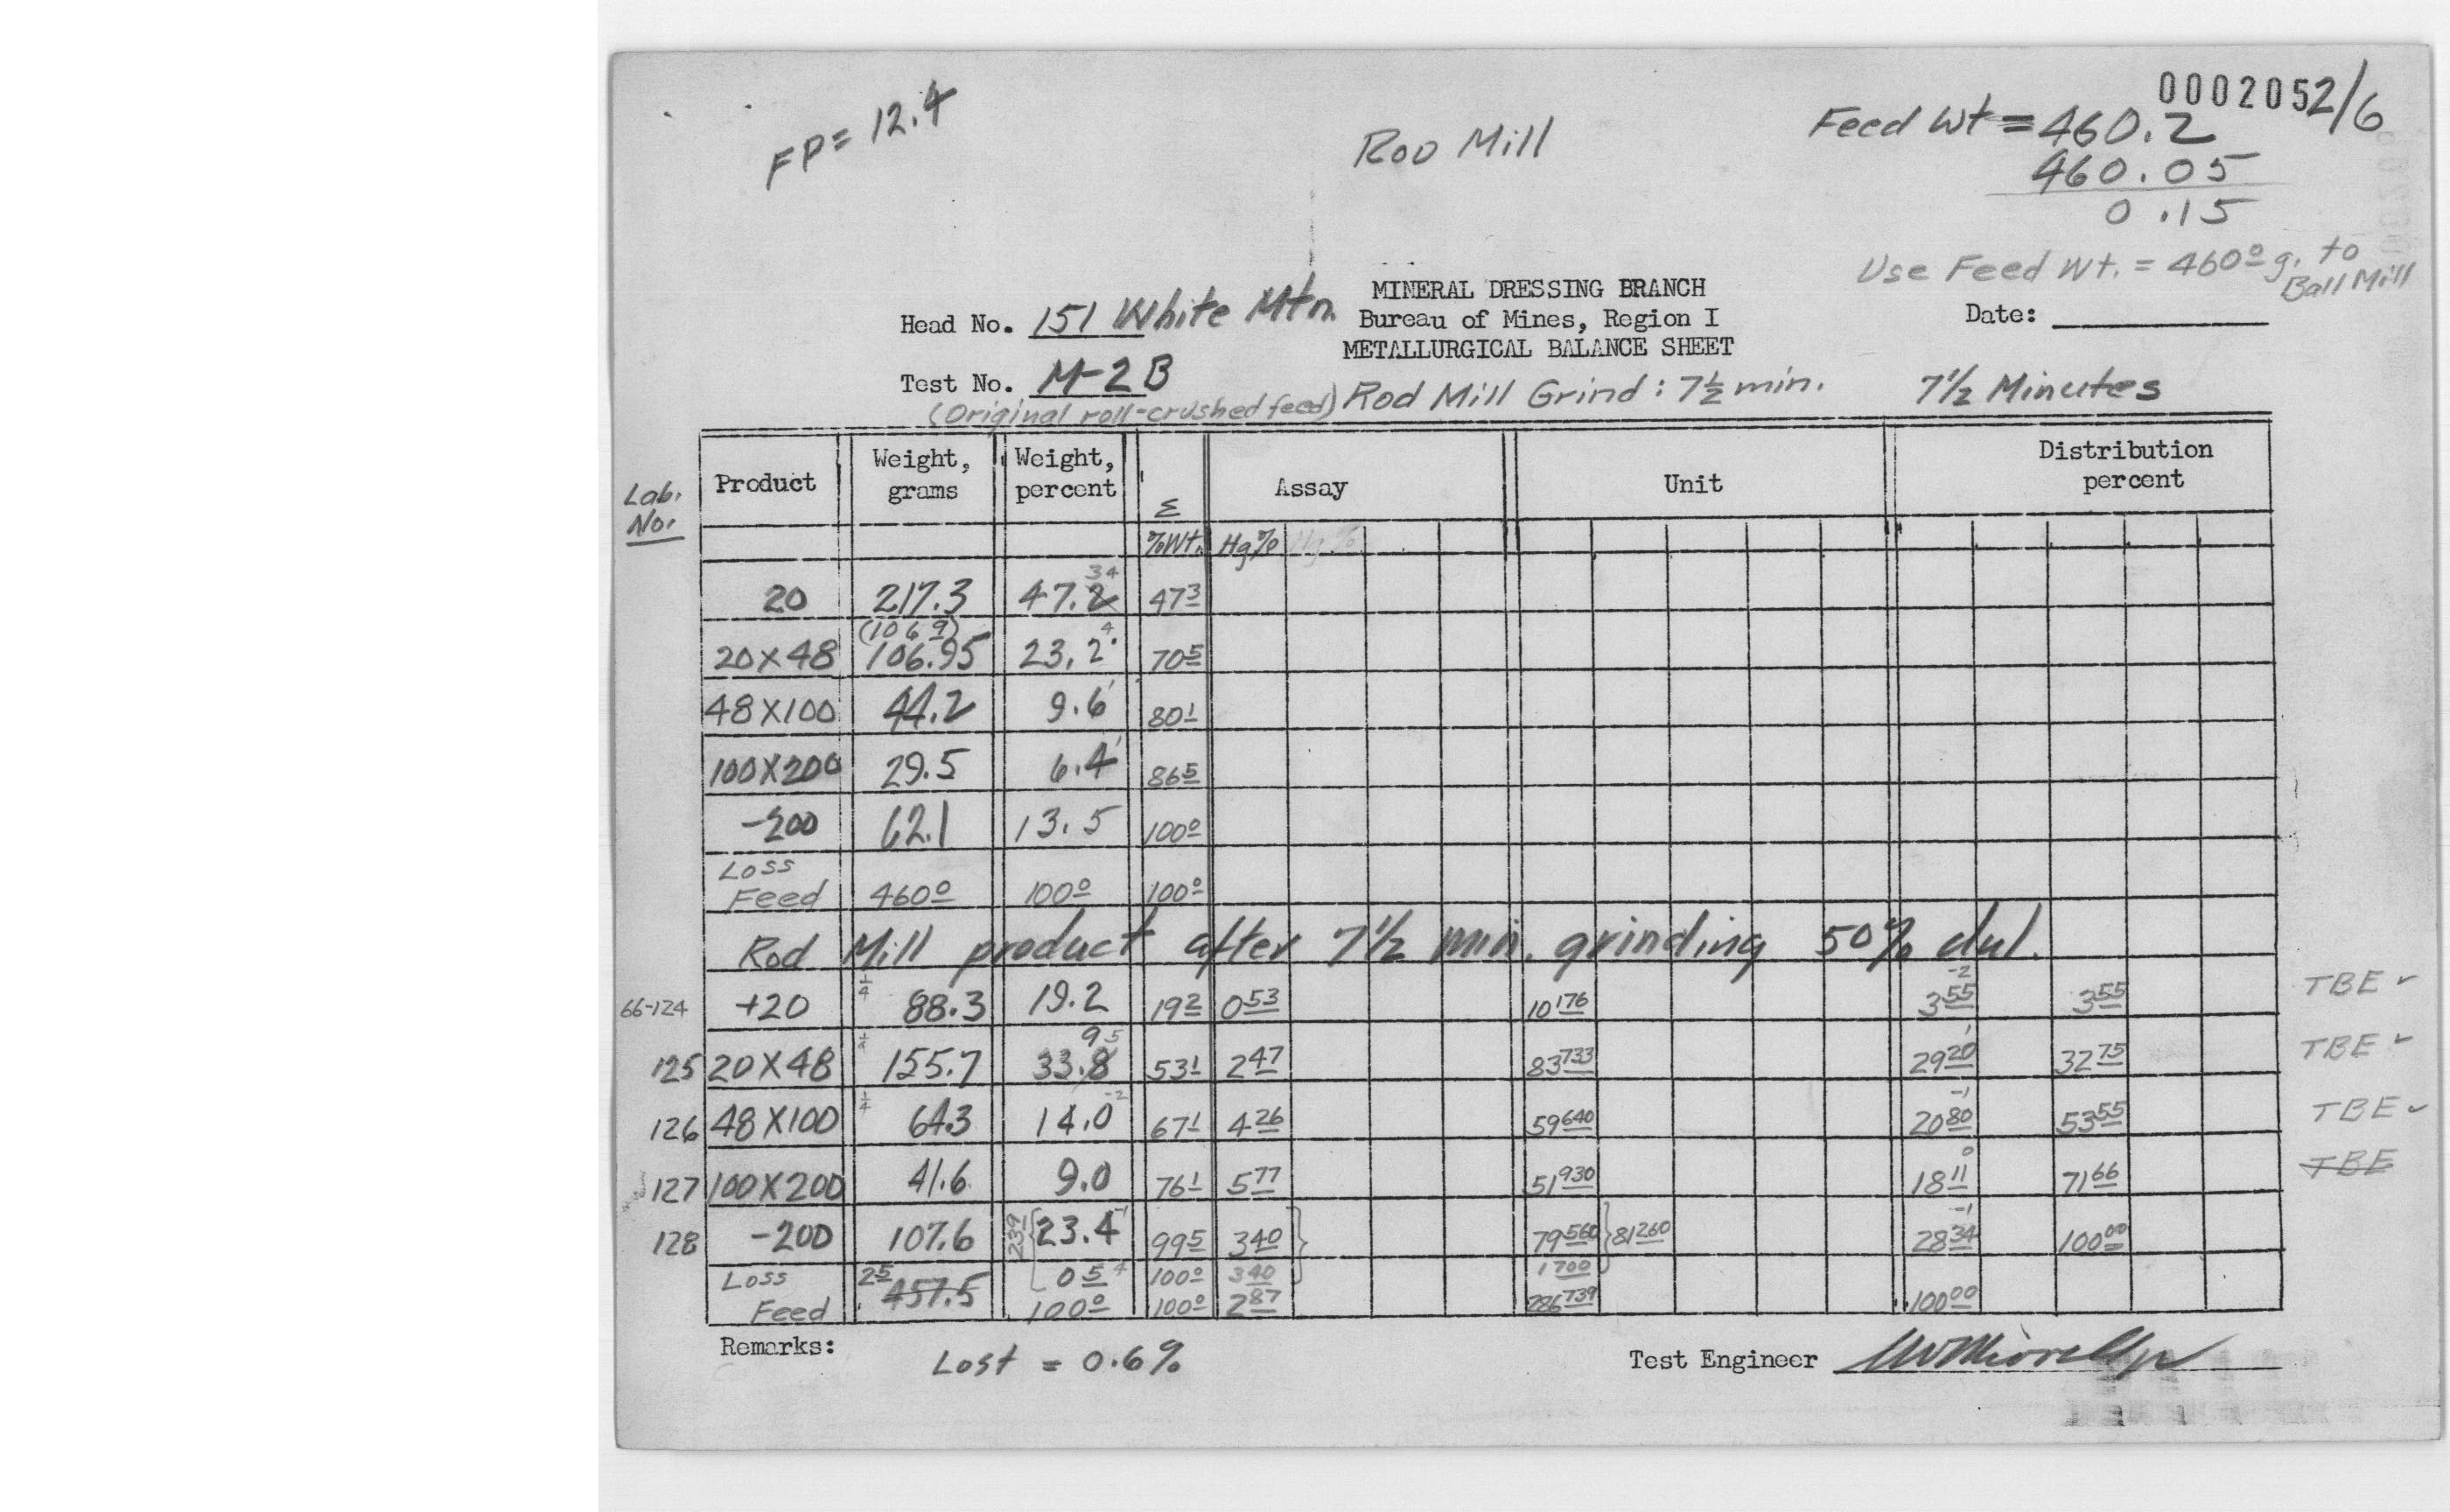 0002052/6
FP = 12.4
Rod Mill
Feed Wt = 460.2
460.05
0.15
Use Feed Wt. = 460.0 g. to Ball Mill
MINERAL DRESSING BRANCH
Head No. 151 White Mtn. Bureau of Mines, Region I Date:
METALLURGICAL BALANCE SHEET
Test No. M-2B
(Original roll-crushed feed) Rod Mill Grind: 7½ min. 7½ Minutes
Lab. No. Product Weight, grams Weight, percent Σ Assay Unit Distribution percent
% Wt. Hg% Hg%
34
20 217.3 47.2 47.3
(106.9) 4
20X48 106.95 23.2 70.5
48X100 44.2 9.6 80.1
100X200 29.5 6.4 86.5
-200 62.1 13.5 100.0
Loss
Feed 460.0 100.0 100.0
Rod Mill product after 7½ min. grinding 50% dul.
-2
66-124 +20 ¼ 88.3 19.2 19.2 0.53 10.176 3.55 3.55 TBE ✓
95 1
125 20X48 ¼ 155.7 33.8 53.1 2.47 83.733 29.20 32.75 TBE ✓
-2 -1
126 48X100 ¼ 64.3 14.0 67.1 4.26 59.640 20.80 53.55 TBE ✓
0
127 100X200 41.6 9.0 76.1 5.77 51.930 18.11 71.66 TBE
-1 -1
128 -200 107.6 23.9 23.4 99.5 3.40 79.560 81.260 28.34 100.00
Loss 2.5 0.5 4 100.0 3.40 1.700
Feed 457.5 100.0 100.0 2.87 286.739 100.00
Remarks: Lost = 0.6%
Test Engineer